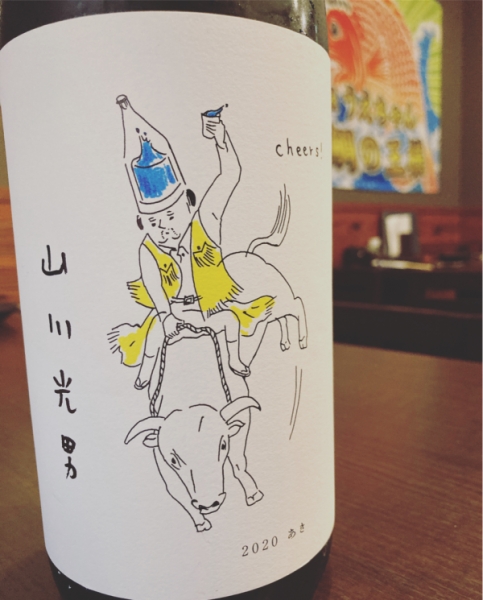 cheers!
山川光男
2020 あき